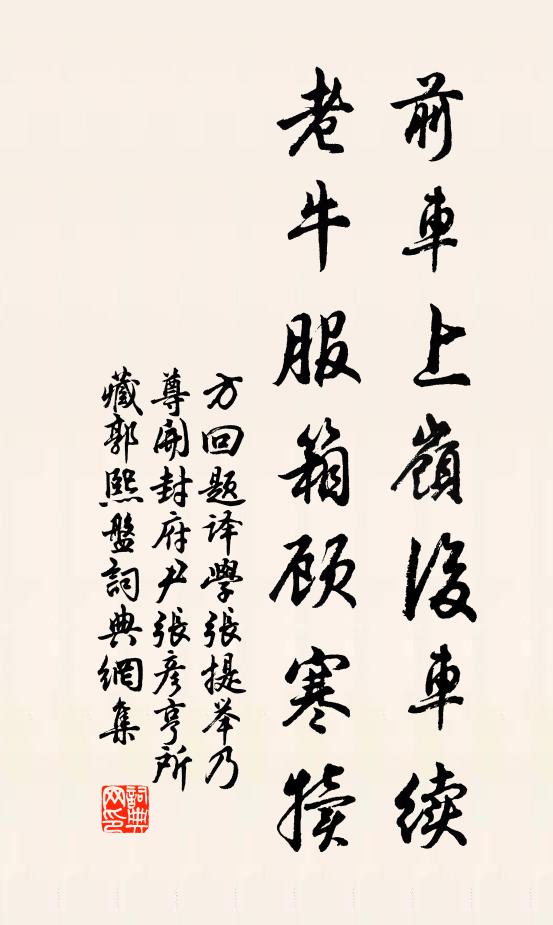 前車上嶺後車续
老牛服箱顾寒犊
方回题译學張提举乃
尊開封府尹張彦亨所
藏郭熙盤詞典網集
詞典网印